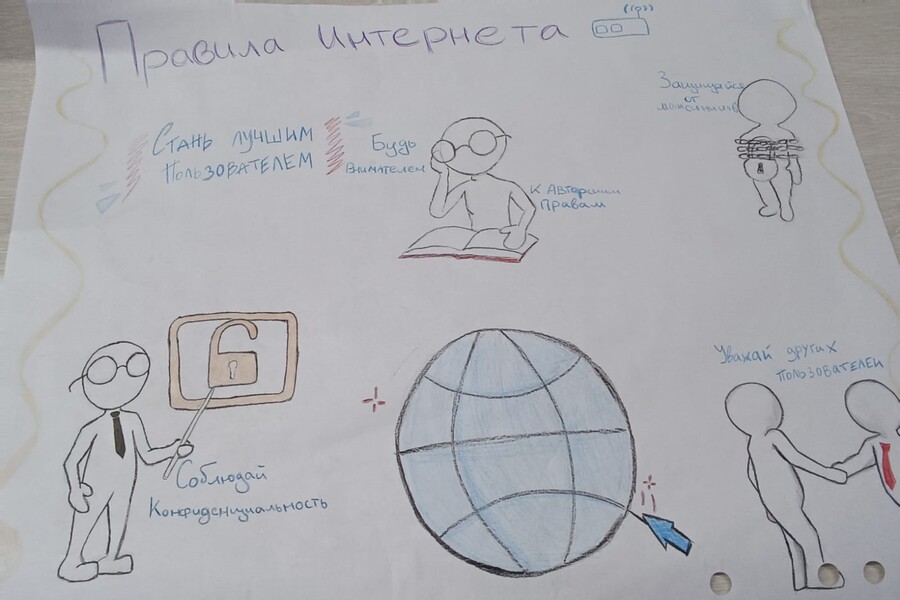 Правила Интернета
Стань лучшим
пользователем
Будь
внимателен
к Авторским
Правам
Защищайся
от
мошенников
Соблюдай
Конфиденциальность
Уважай других
пользователей